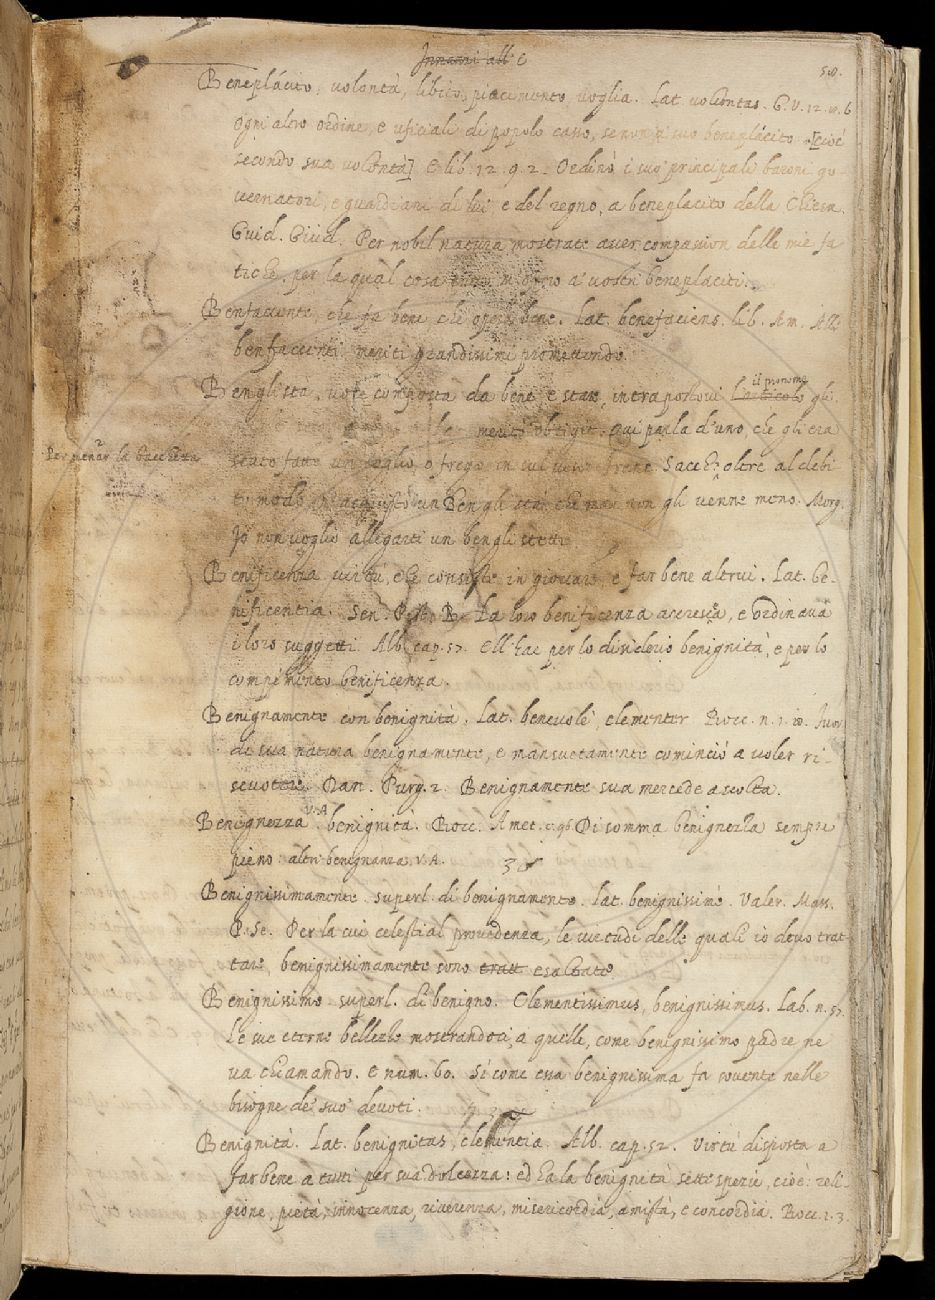 Innanzi all' E
Beneplácito, volontà, libito, piacimento, voglia. Lat. voluntas. G. V. 12. 10. 6
ogni altro ordine, e uficiali di popolo casso, se non a suo beneplácito. [cioè
secondo sua volontà] E lib. 12. 9. 2. Ordinò i suo' principali baroni go-
vernatori, e guardiani di lui, e del regno, a beneplacito della Chiesa.
Guid. Giud. Per nobil natura mostrate aver compassion delle mie fa
tiche, per la qual cosa a' vostri beneplaciti.
Benfacente, che fa bene che opera bene. Lat. benefaciens. lib. Am. Alli
benfaccenti meriti grandissimi promettendo.
Benglista, voce composta da bene e stare, intrapostovi L'articolo il pronome gli.
merito obtigit. Qui parla d'uno, che gli era
stato fatto un o fregio in sul viso Sacch. oltre al debi-
Per menar la bacchetta
to modo, un Ben gli stea che mai non gli venne meno. Morg.
Io non voglio allegarti un bengli stette
Benificenza virtù, che consiste in giovare, e far bene altrui. Lat. be-
nificentia. Sen. La loro benificenza accresca, e ordinava
i loro suggetti. Alb. cap. 57. Ell' hae per lo disiderio benignità, e per lo
compimento benificenza.
Benignamente con benignità. Lat. benevolè, clementer Bocc. n. 1. 10.
di sua natura benignamente, e mansuetamente cominciò a voler ri-
scuotere. Dan. Purg. 2. Benignamente sua mercede ascolta.
Benignezza V. A. benignità. Bocc. Amet. c. 96 Di somma benignezza sempre
pieno: altri benignanza. V. A.
Benignissimamente. superl. di benignamente. Lat. benignissimè. Valer. Mass.
P. Se. Per la cui celestial provedenza, le virtudi delle quali io devo trat-
tare, benignissimamente sono tratt esaltate
Benignissimo superl. di benigno. Clementissimus, benignissimus. Lab. n. 57.
Le sue eterne bellezze mostrandoci, a quelle, come benignissimo padre ne
va chiamando. E num. 60. Si come essa benignissima fa sovente nelle
bisogne de' suo' devoti.
Benignità. Lat. benignitas, clementia. Alb. cap. 52. Virtù disposta a
far bene a tutti per sua dolcezza: ed ha la benignità sette spezie, cioè: reli-
gione, pietà, innocenza, riverenza, misericordia, amistà, e concordia. Bocc. 2. 3.